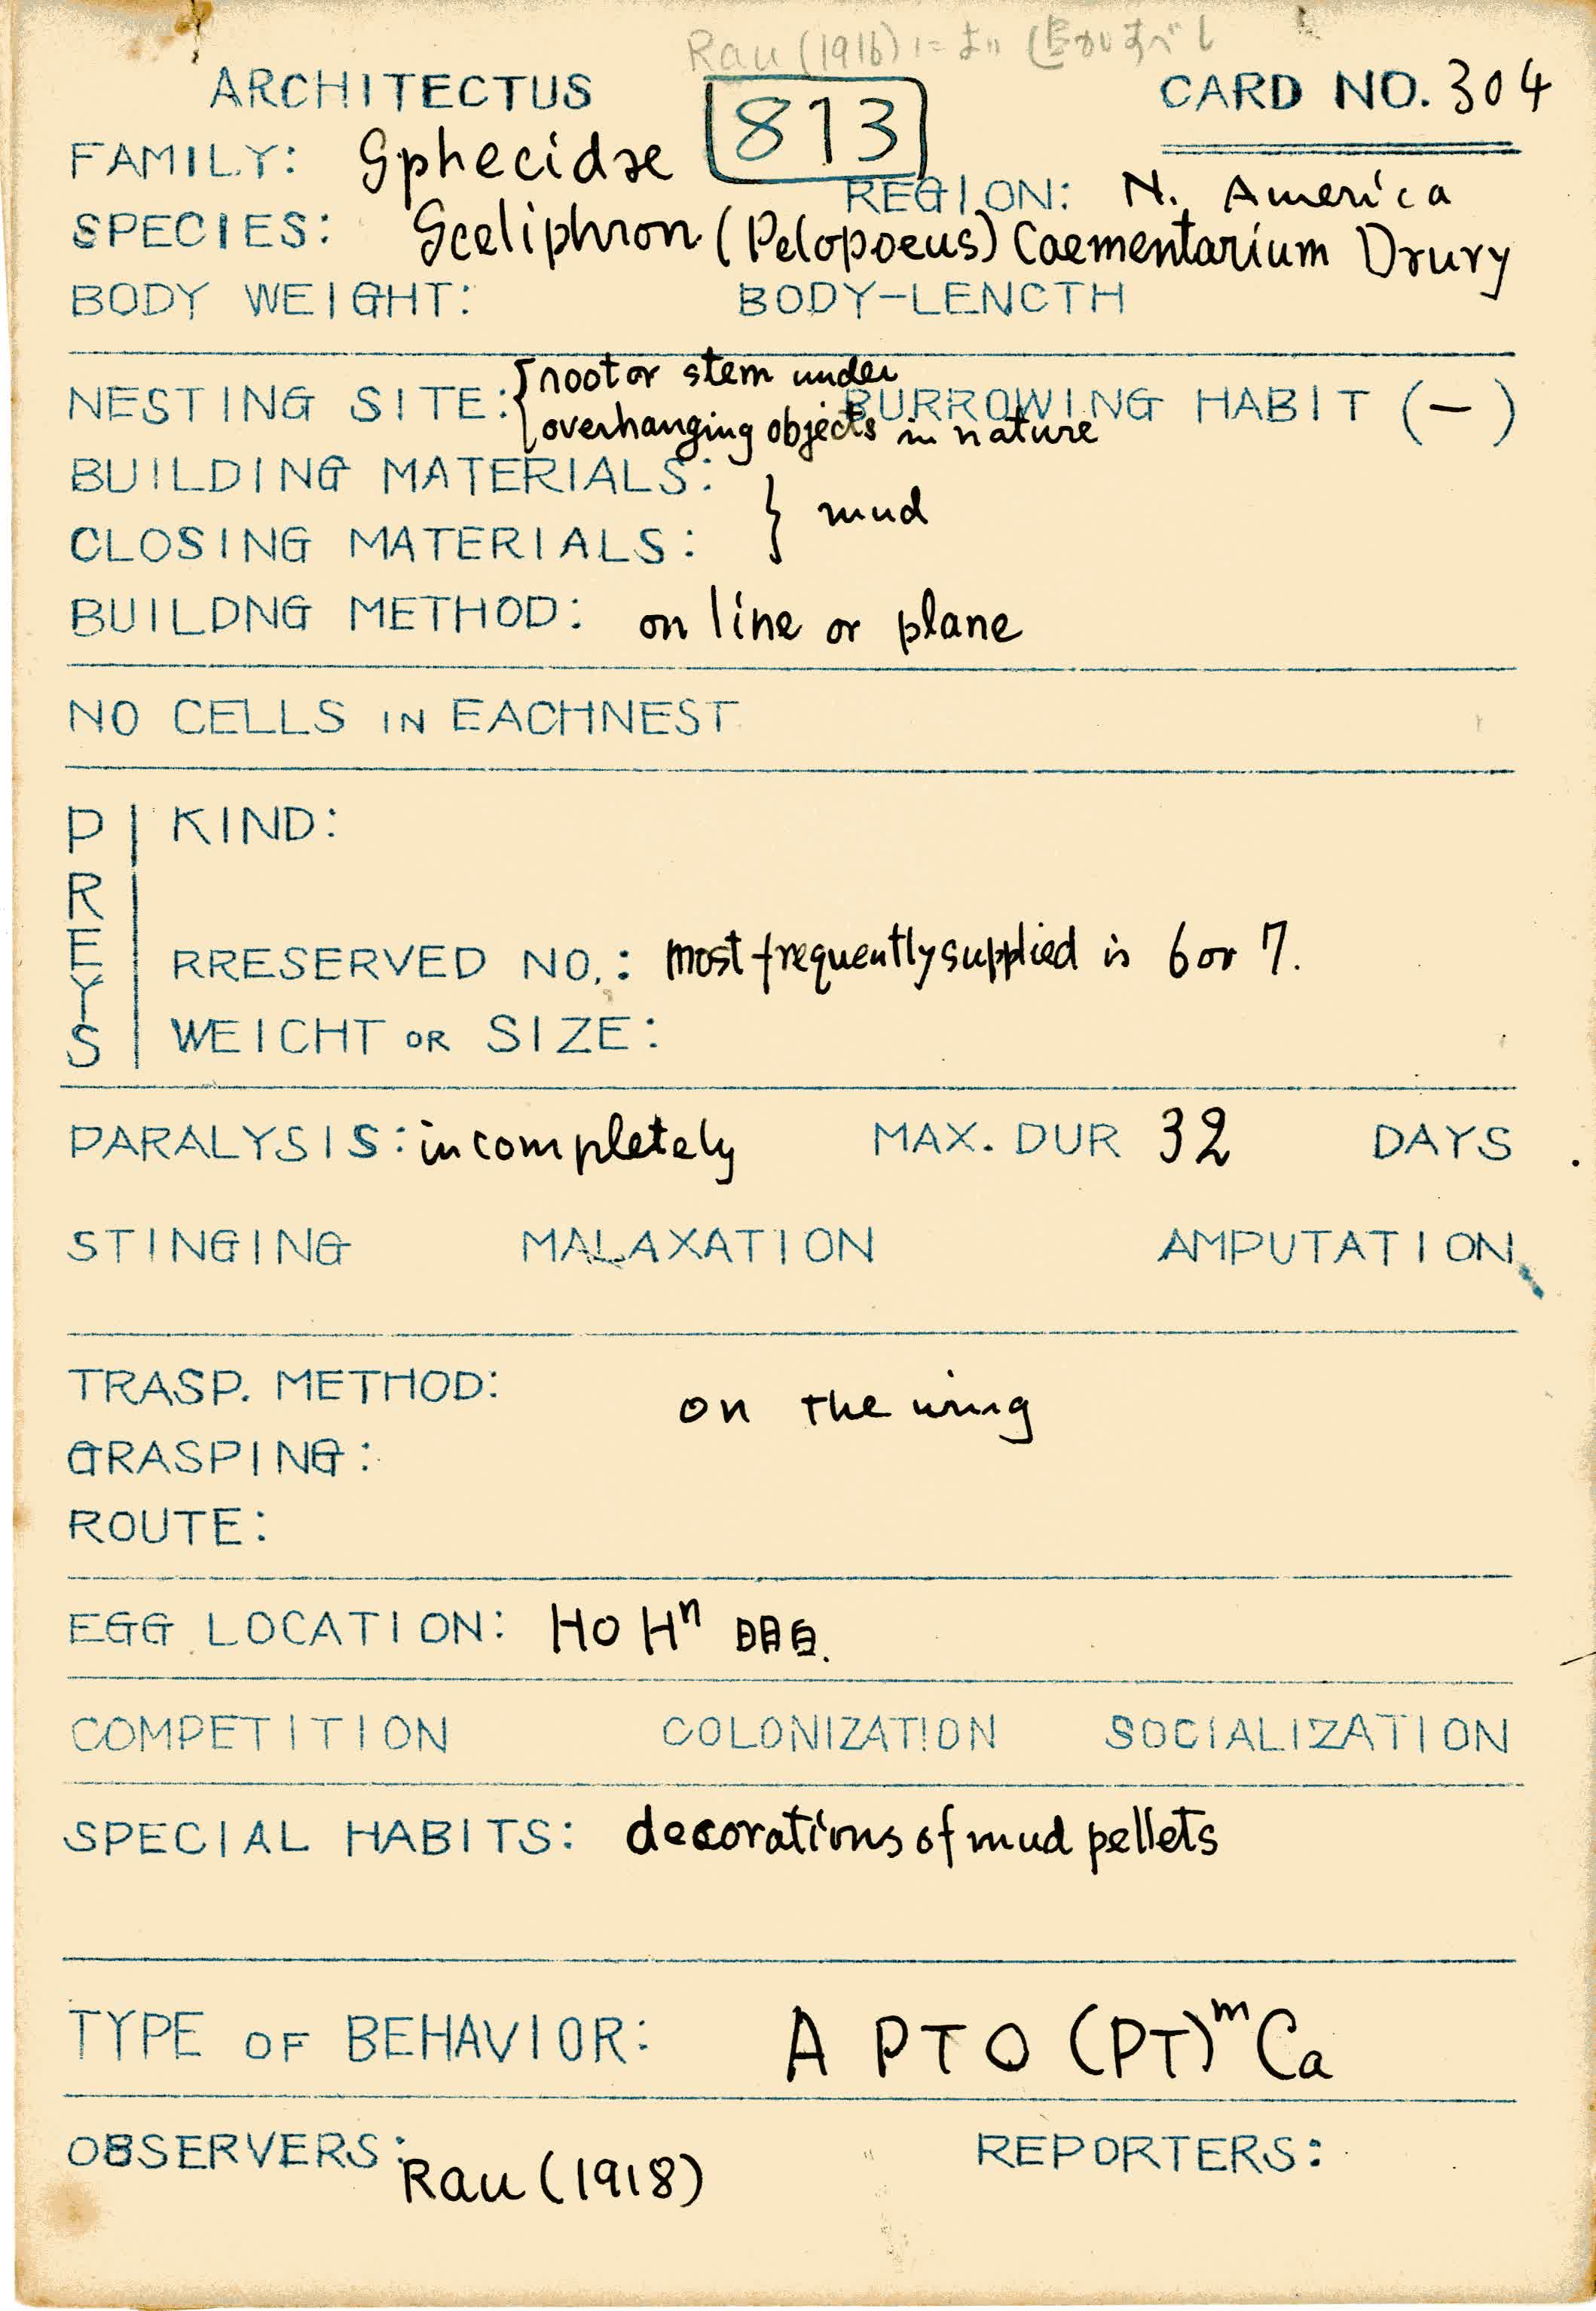 Rau (1916) により
ARCHITECTUS 813 CARD NO. 304
FAMILY: Sphecidae REGION: N. America
SPECIES: Sceliphron (Pelopoeus) Caementarium Drury
BODY WEIGHT: BODY-LENCTH
NESTING SITE: { root or stem under
overhanging objects in nature BURROWING HABIT (-)
BUILDING MATERIALS:
CLOSING MATERIALS: } mud
BUILDNG METHOD: on line or plane
NO CELLS IN EACHNEST
PREYS
KIND:
RRESERVED NO.: most frequently supplied is 6 or 7.
WEICHT OR SIZE:
PARALYSIS: incompletely MAX. DUR 32 DAYS
STINGING MALAXATION AMPUTATION
TRASP. METHOD: on the wing
GRASPING:
ROUTE:
EGG LOCATION: HO Hⁿ 明白.
COMPETITION COLONIZATION SOCIALIZATION
SPECIAL HABITS: decorations of mud pellets
TYPE OF BEHAVIOR: A PTO (PT)ᵐ Ca
OBSERVERS: Rau (1918) REPORTERS: